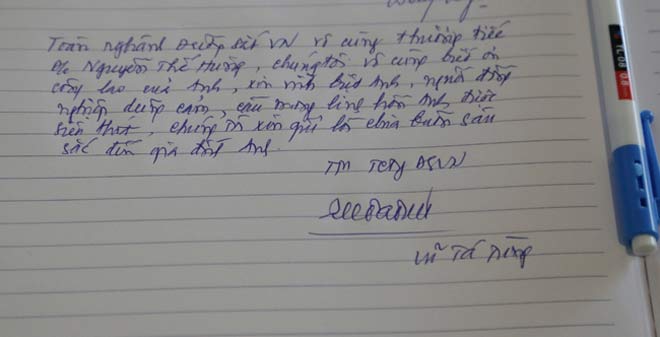 Toàn nghành Đường sắt VN vô cùng thương tiếc
Đ/c Nguyễn Thế Hường, chúng tôi vô cùng biết ơn
công lao của Anh, xin vĩnh biệt Anh, người đồng
nghiệp dũng cảm, cầu mong linh hồn Anh được
siêu thoát, chúng tôi xin gửi lời chia buồn sâu
sắc đến gia đình Anh.
TM TCty ĐSVN
Vũ Tá Tùng
TL 08 0.8